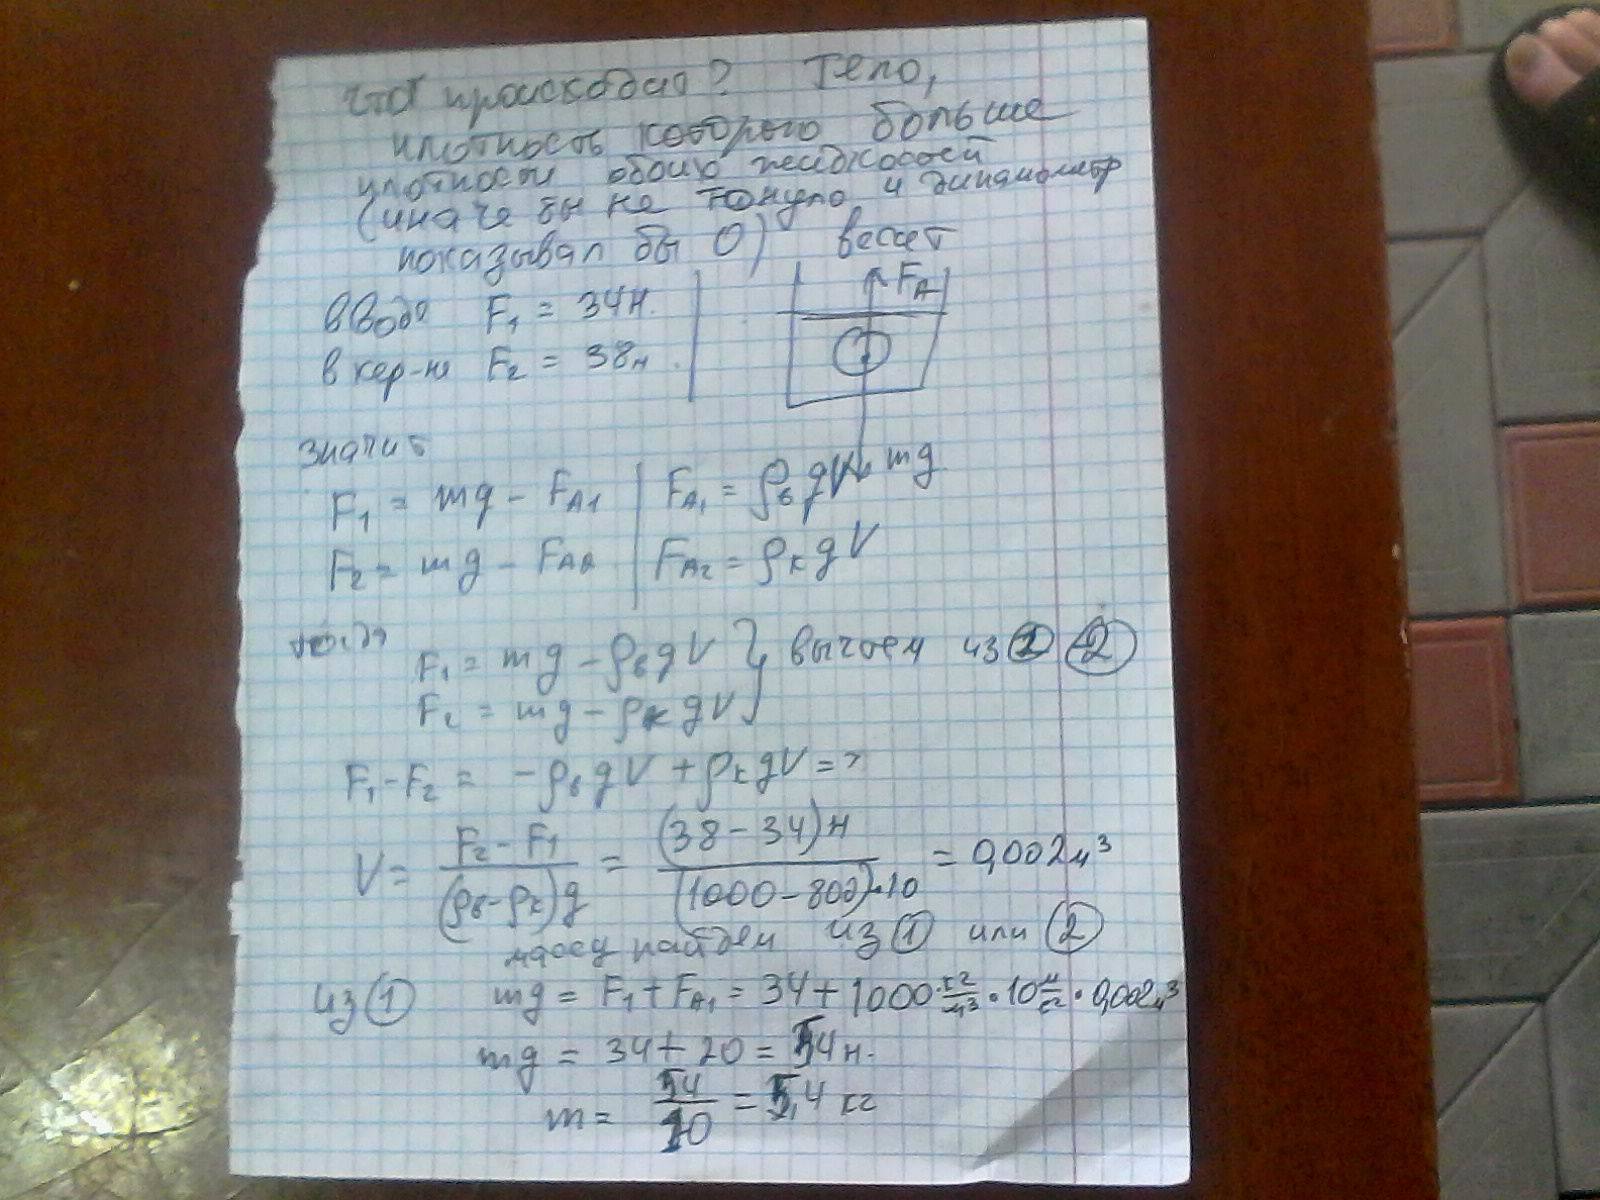 что происходит? Тело,
плотность которого больше
плотности обоих жидкостей
(иначе бы не тонуло и динамометр
показывал бы 0) весит
в воде F₁ = 34 н.
в кер-не F₂ = 38 н.
F_A
mg
значит
F₁ = mg - F_A1 | F_A1 = ρ_в g V
F₂ = mg - F_A2 | F_A2 = ρ_к g V
тогда
F₁ = mg - ρ_в g V } вычтем из ① ②
F₂ = mg - ρ_к g V
F₁ - F₂ = - ρ_в g V + ρ_к g V =>
V = (F₂ - F₁)/((ρ_в - ρ_к) g) = (38 - 34) н/((1000 - 800)·10) = 0,002 м³
массу найдем из ① или ②
из ① mg = F₁ + F_A1 = 34 + 1000 · кг/м³ · 10 м/с² · 0,002 м³
mg = 34 + 20 = 54 н.
m = 54/10 = 5,4 кг